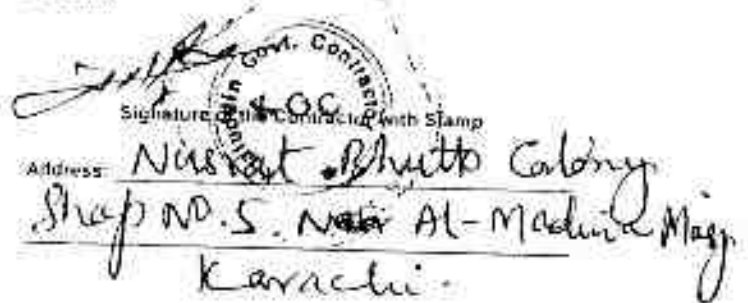 Govt. Contractor
& OC
Signature of the Contractor with Stamp
Address: Nusrat Bhutto Colony
Shop NO. 5. Near Al-Madina Masj.
Karachi.